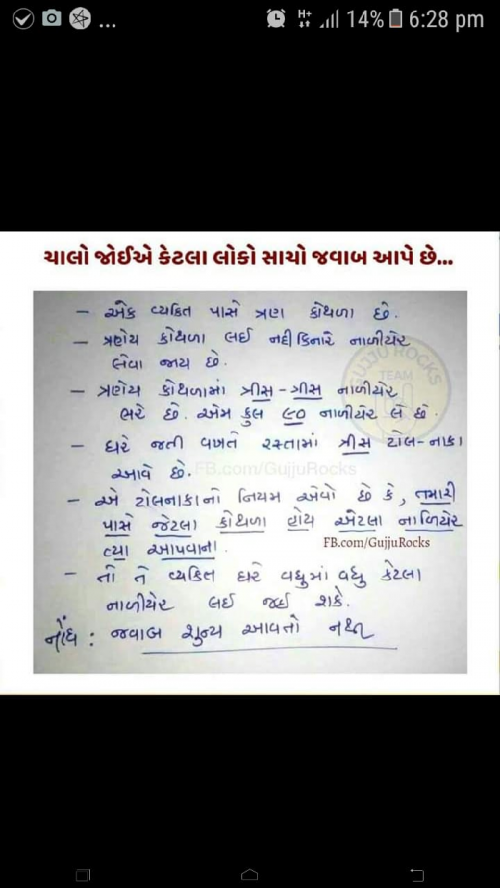 ... 14% 6:28 pm
ચાલો જોઈએ કેટલા લોકો સાચો જવાબ આપે છે...
- એક વ્યકિત પાસે ત્રણ કોથળા છે.
- ત્રણેય કોથળા લઈ નદી કિનારે નાળીયેર
લેવા જાય છે.
- ત્રણેય કોથળામાં ત્રીસ-ત્રીસ નાળીયેર
ભરે છે. એમ કુલ ૯૦ નાળીયેર લે છે.
- ઘરે જતી વખતે રસ્તામાં ત્રીસ ટોલ-નાકા
આવે છે.
- એ ટોલનાકાનો નિયમ એવો છે કે, તમારી
પાસે જેટલા કોથળા હોય એટલા નાળિયેર
ત્યા આપવાના.
- તો તે વ્યકિત ઘરે વધુમાં વધુ કેટલા
નાળીયેર લઈ જઈ શકે.
નોંધ : જવાબ શુન્ય આવતો નથી
GUJJU ROCKS
TEAM
FB.com/GujjuRocks
FB.com/GujjuRocks